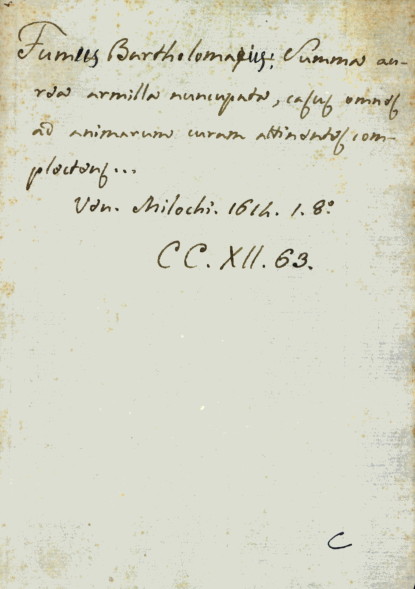 Fumus Bartholomaeus: Summa au-
rea armilla nuncupata, casus omnes
ad animarum curam attinentes com-
plectens...
Ven. Milochi. 1614. 1. 8°
CC. XII. 63.
C